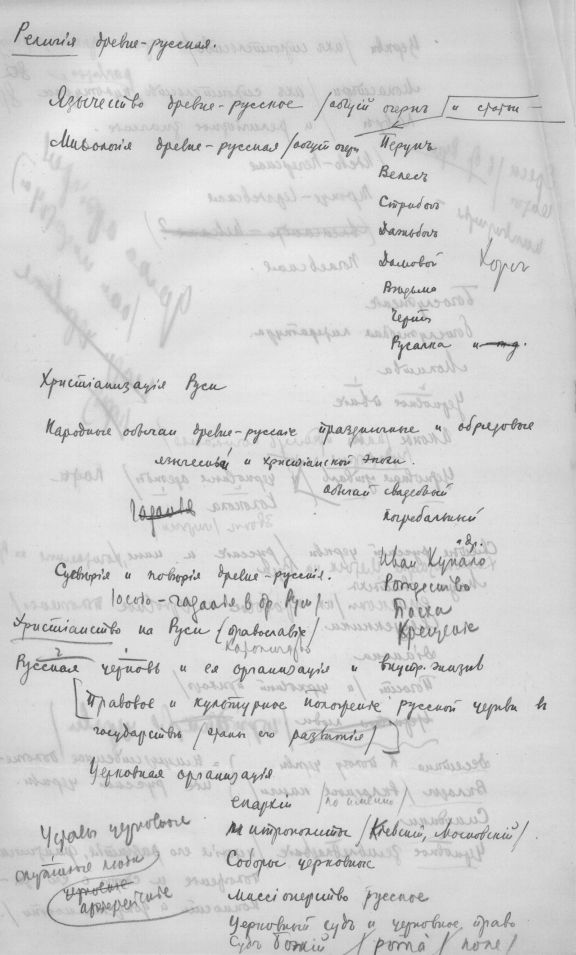 Религія древне-русская.
Язычество древне-русское /общій очеркъ и статьи —
Миѳологія древне-русская /общій очеркъ Перунъ
Велесъ
Стрибогъ
Дажьбогъ
Домовой Хорсъ
Вѣдьма
Чертъ
Русалка и т.д.
Христіанизація Руси
Народные обычаи древне-русскіе праздничные и обрядовые
языческой и христіанской эпохи.
обычай свадебный
погребальный
и др.
Иван Купало
Суевѣрія и повѣрія древне-русскія. Рождество
гадалія в др Руси/ Пасха
Христіанство на Руси (православіе) Крещеніе
Русская церковь и ея организація и внутр. жизнь
[Правовое и культурное положеніе русской церкви въ
государствѣ /этапы его развитія/]
Церковная организація
епархіи /по имени/
Уставы церковные митрополиты /Кіевскій, Московскій/
служилые люди Соборы церковные
церковные
архіерейскіе Миссіонерство русское
Церковный судъ и церковное право
Судъ Божій /рота/ поле/